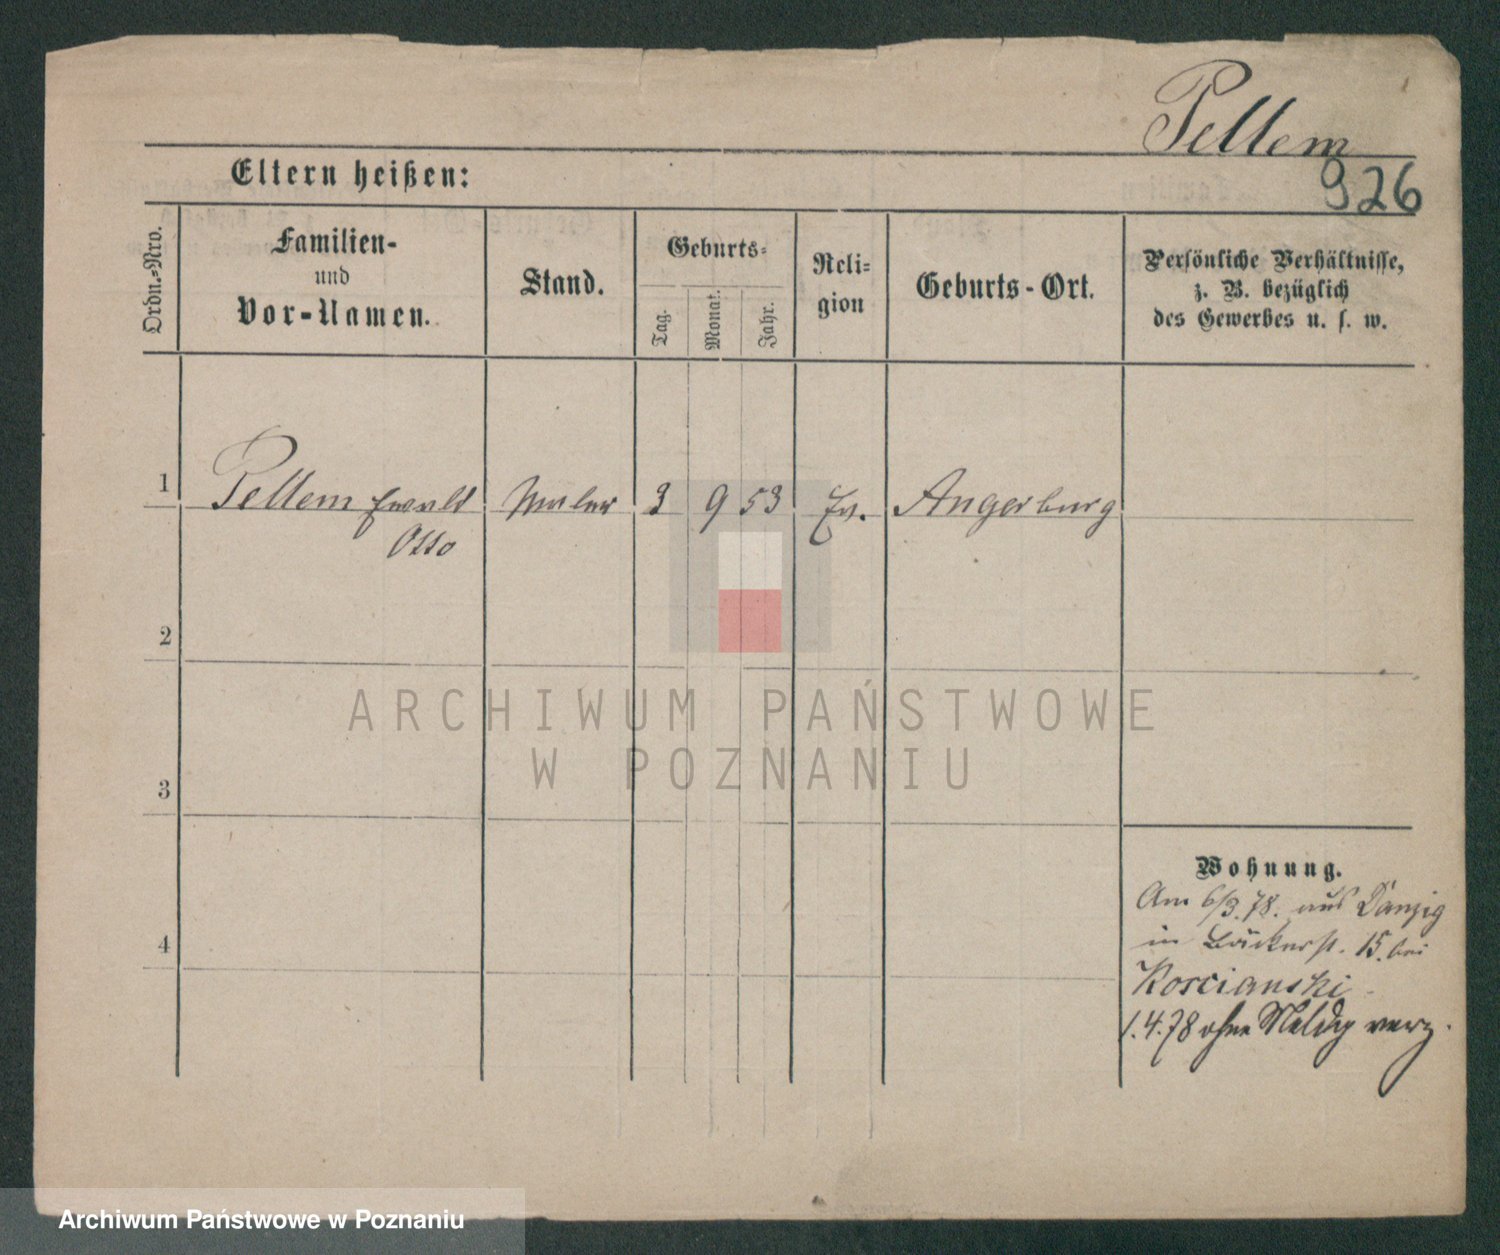 Pellem
926
Eltern heißen:
Ordn.=Nro.
Familien-
und
Vor-Namen.
Stand.
Geburts-
Tag.
Monat.
Jahr.
Reli-
gion
Geburts-Ort.
Persönliche Verhältnisse,
z. B. bezüglich
des Gewerbes u. s. w.
1
Pellem Ewald
Otto
Maler
3
9
53
Ev.
Angerburg
2
3
4
ARCHIWUM PAŃSTWOWE
W POZNANIU
Wohnung.
Am 6/3.78. aus Danzig
in Bäckerst. 15. bei
Koscianski
1.4.78 ohne Meldg verz.
Archiwum Państwowe w Poznaniu